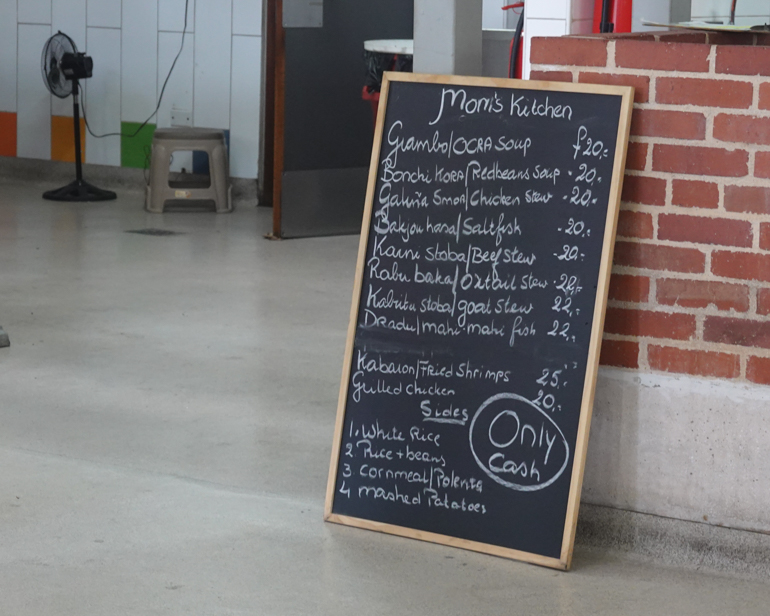 Mom's Kitchen
Giambo/OCRA Soup ƒ20,-
Bonchi Kora/Redbeans Soup - 20,-
Galiña Smor/Chicken Stew - 20,-
Bakjou hasa/Saltfish - 20,-
Karni Stoba/Beef Stew - 20,-
Rabu baka/Oxtail Stew - 22,-
Kabritu stoba/goat stew 22,-
Dradu/mahi mahi fish 22,-
Kabaron/Fried Shrimps 25,-
Grilled Chicken 20,-
Sides
1. White Rice
2 Rice + beans
3 cornmeal/Polenta
4 mashed Patatoes
Only
Cash